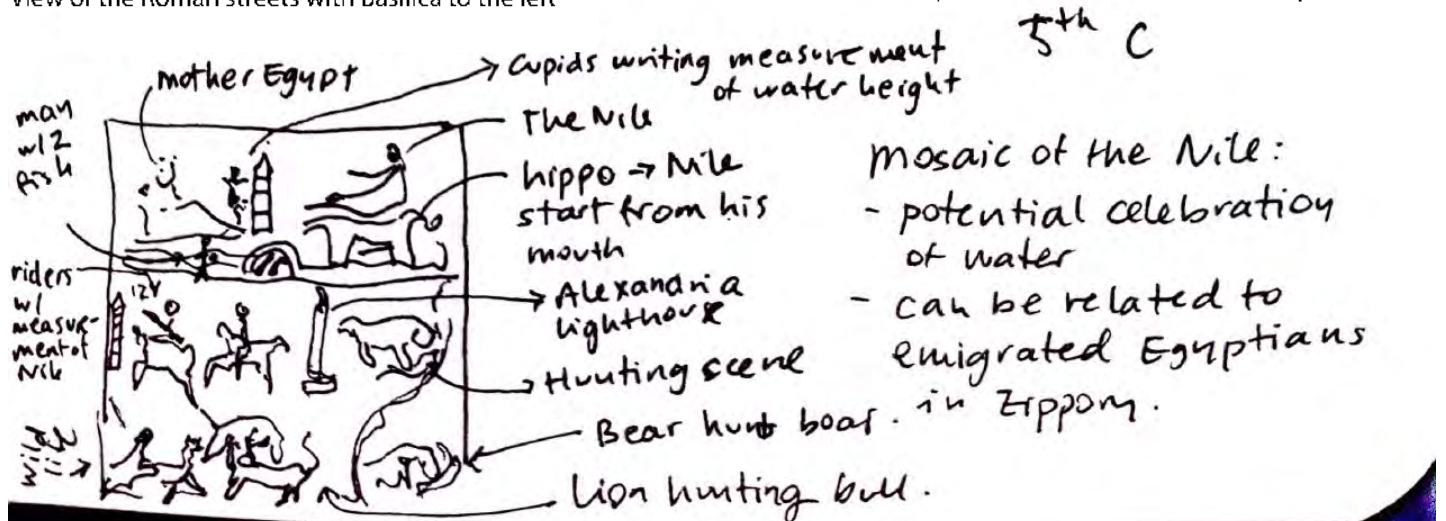 View of the Roman streets with Basilica to the left
5th C
mother Egypt
Cupids writing measurement
of water height
man
w/2
fish
The Nile
hippo → Nile
start from his
mouth
riders
w/
measure-
ment of
Nile
Alexandria
lighthouse
Hunting scene
Bear hunt boar.
Lion hunting bull.
mosaic of the Nile:
- potential celebration
of water
- can be related to
emigrated Egyptians
in Zippory.